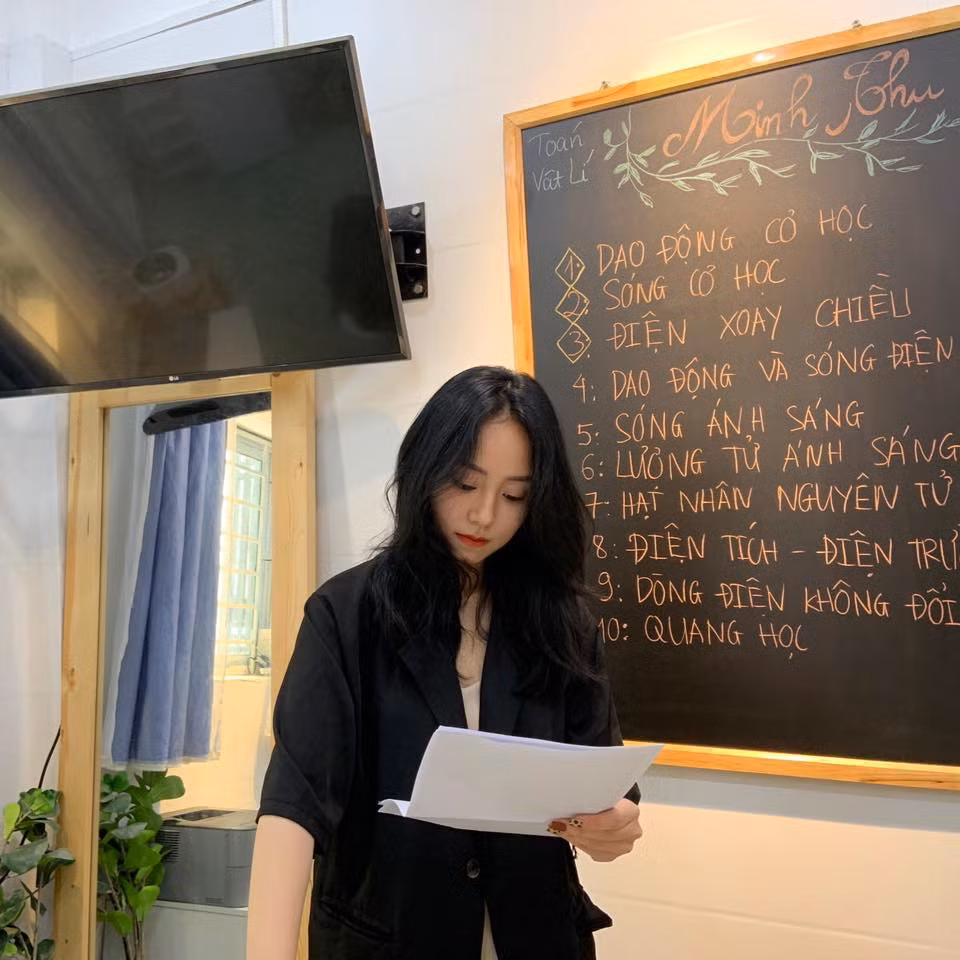 Toán
Vật Lí
Minh Thu
1. DAO ĐỘNG CƠ HỌC
2. SÓNG CƠ HỌC
3. ĐIỆN XOAY CHIỀU
4: DAO ĐỘNG VÀ SÓNG ĐIỆN
5: SÓNG ÁNH SÁNG
6: LƯỢNG TỬ ÁNH SÁNG
7. HẠT NHÂN NGUYÊN TỬ
8: ĐIỆN TÍCH - ĐIỆN
9: DÒNG ĐIỆN KHÔNG ĐỔI
10: QUANG HỌC
LG